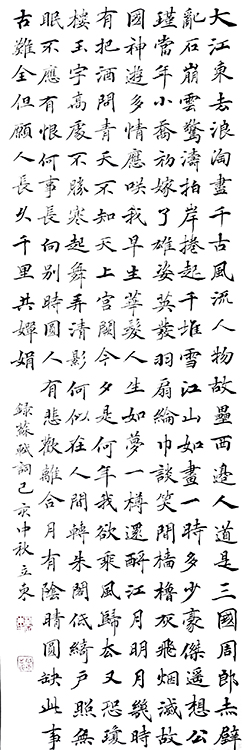 大江東去浪淘盡千古風流人物故壘西邊人道是三國周郎赤壁
亂石崩雲驚濤拍岸捲起千堆雪江山如畫一時多少豪傑遙想公
瑾當年小喬初嫁了雄姿英發羽扇綸巾談笑間檣櫓灰飛烟滅故
國神遊多情應咲我早生華髮人生如夢一樽還酹江月明月幾時
有把酒問青天不知天上宮闕今夕是何年我欲乘風歸去又恐瓊
樓玉宇高處不勝寒起舞弄清影何似在人間轉朱閣低綺戶照無
眠不應有恨何事長向別時圓人有悲歡離合月有陰晴圓缺此事
古難全但願人長久千里共嬋娟
錄蘇軾詞己亥中秋立東